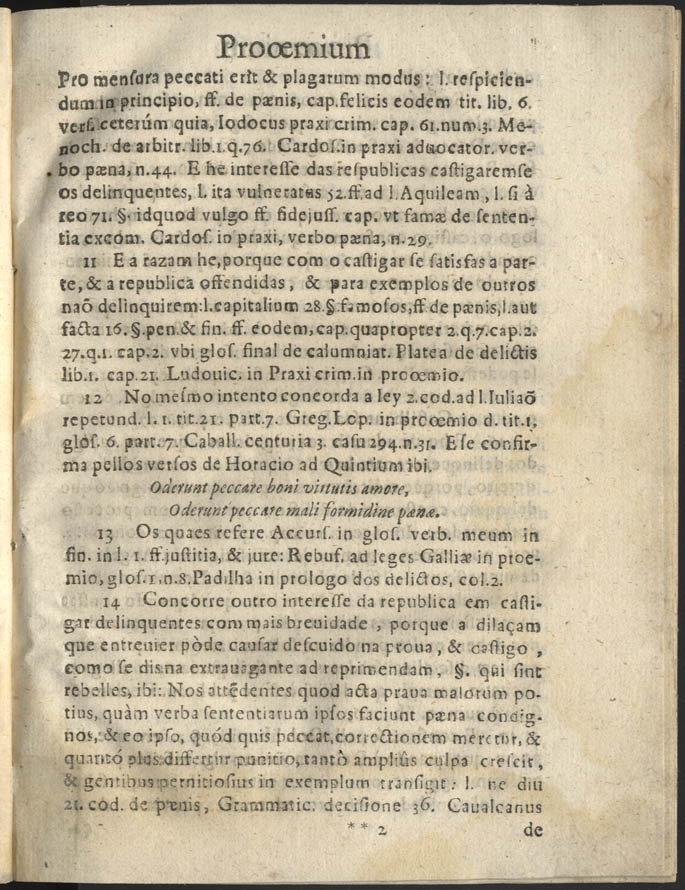 Proœmium
Pro mensura peccati erit & plagarum modus: l. respicien-
dum in principio, ff. de pœnis, cap. felicis eodem tit. lib. 6.
vers. ceterúm quia, Iodocus praxi crim. cap. 61. num. 3. Me-
noch. de arbitr. lib. 1. q. 76. Cardos. in praxi aduocator. ver-
bo pæna, n. 44. E he interesse das respublicas castigaremse
os delinquentes, l. ita vulneratus 52. ff. ad l. Aquileam, l. si à
reo 71. §. idquod vulgo ff. fidejuss. cap. vt famæ de senten-
tia excom. Cardos. in praxi, verbo pæna, n. 29.
11 E a razam he, porque com o castigar se satisfas a par-
te, & a republica offendidas, & para exemplos de outros
naõ delinquirem: l. capitalium 28. §. famosos, ff. de pænis, l. aut
facta 16. §. pen. & fin. ff. eodem, cap. quapropter 2. q. 7. cap. 2.
27. q. 1. cap. 2. vbi glos. final de calumniat. Platea de delictis
lib. 1. cap. 21. Ludouic. in Praxi crim. in proœmio.
12 No mesmo intento concorda a ley 2. cod. ad l. Iuliaõ
repetund. l. 1. tit. 21. part. 7. Greg. Lop. in prœemio d. tit. 1.
glos. 6. part. 7. Caball. centuria 3. casu 294. n. 31. E se confir-
ma pellos versos de Horacio ad Quintium ibi.
Oderunt peccare boni virtutis amore,
Oderunt peccare mali formidine pænæ.
13 Os quaes refere Accurs. in glos. verb. meum in
fin. in l. 1. ff. justitia, & jure: Rebuf. ad leges Galliæ in proe-
mio, glos. 1. n. 8. Padilha in prologo dos delictos, col. 2.
14 Concorre outro interesse da republica em casti-
gar delinquentes com mais breuidade, porque a dilaçam
que entreuier pòde causar descuido na proua, & castigo,
como se dis na extrauagante ad reprimendam, §. qui sint
rebelles, ibi: Nos attẽdentes quod acta praua malorum po-
tius, quàm verba sententiarum ipsos faciunt pæna condig-
nos, & eo ipso, quód quis peccat, correctionem meretur, &
quantó plus differtur punitio, tantò ampliûs culpa crescit,
& gentibus pernitiosius in exemplum transigit: l. ne diu
21. cod. de pænis, Grammatic. decisione 36. Caualcanus
** 2 de